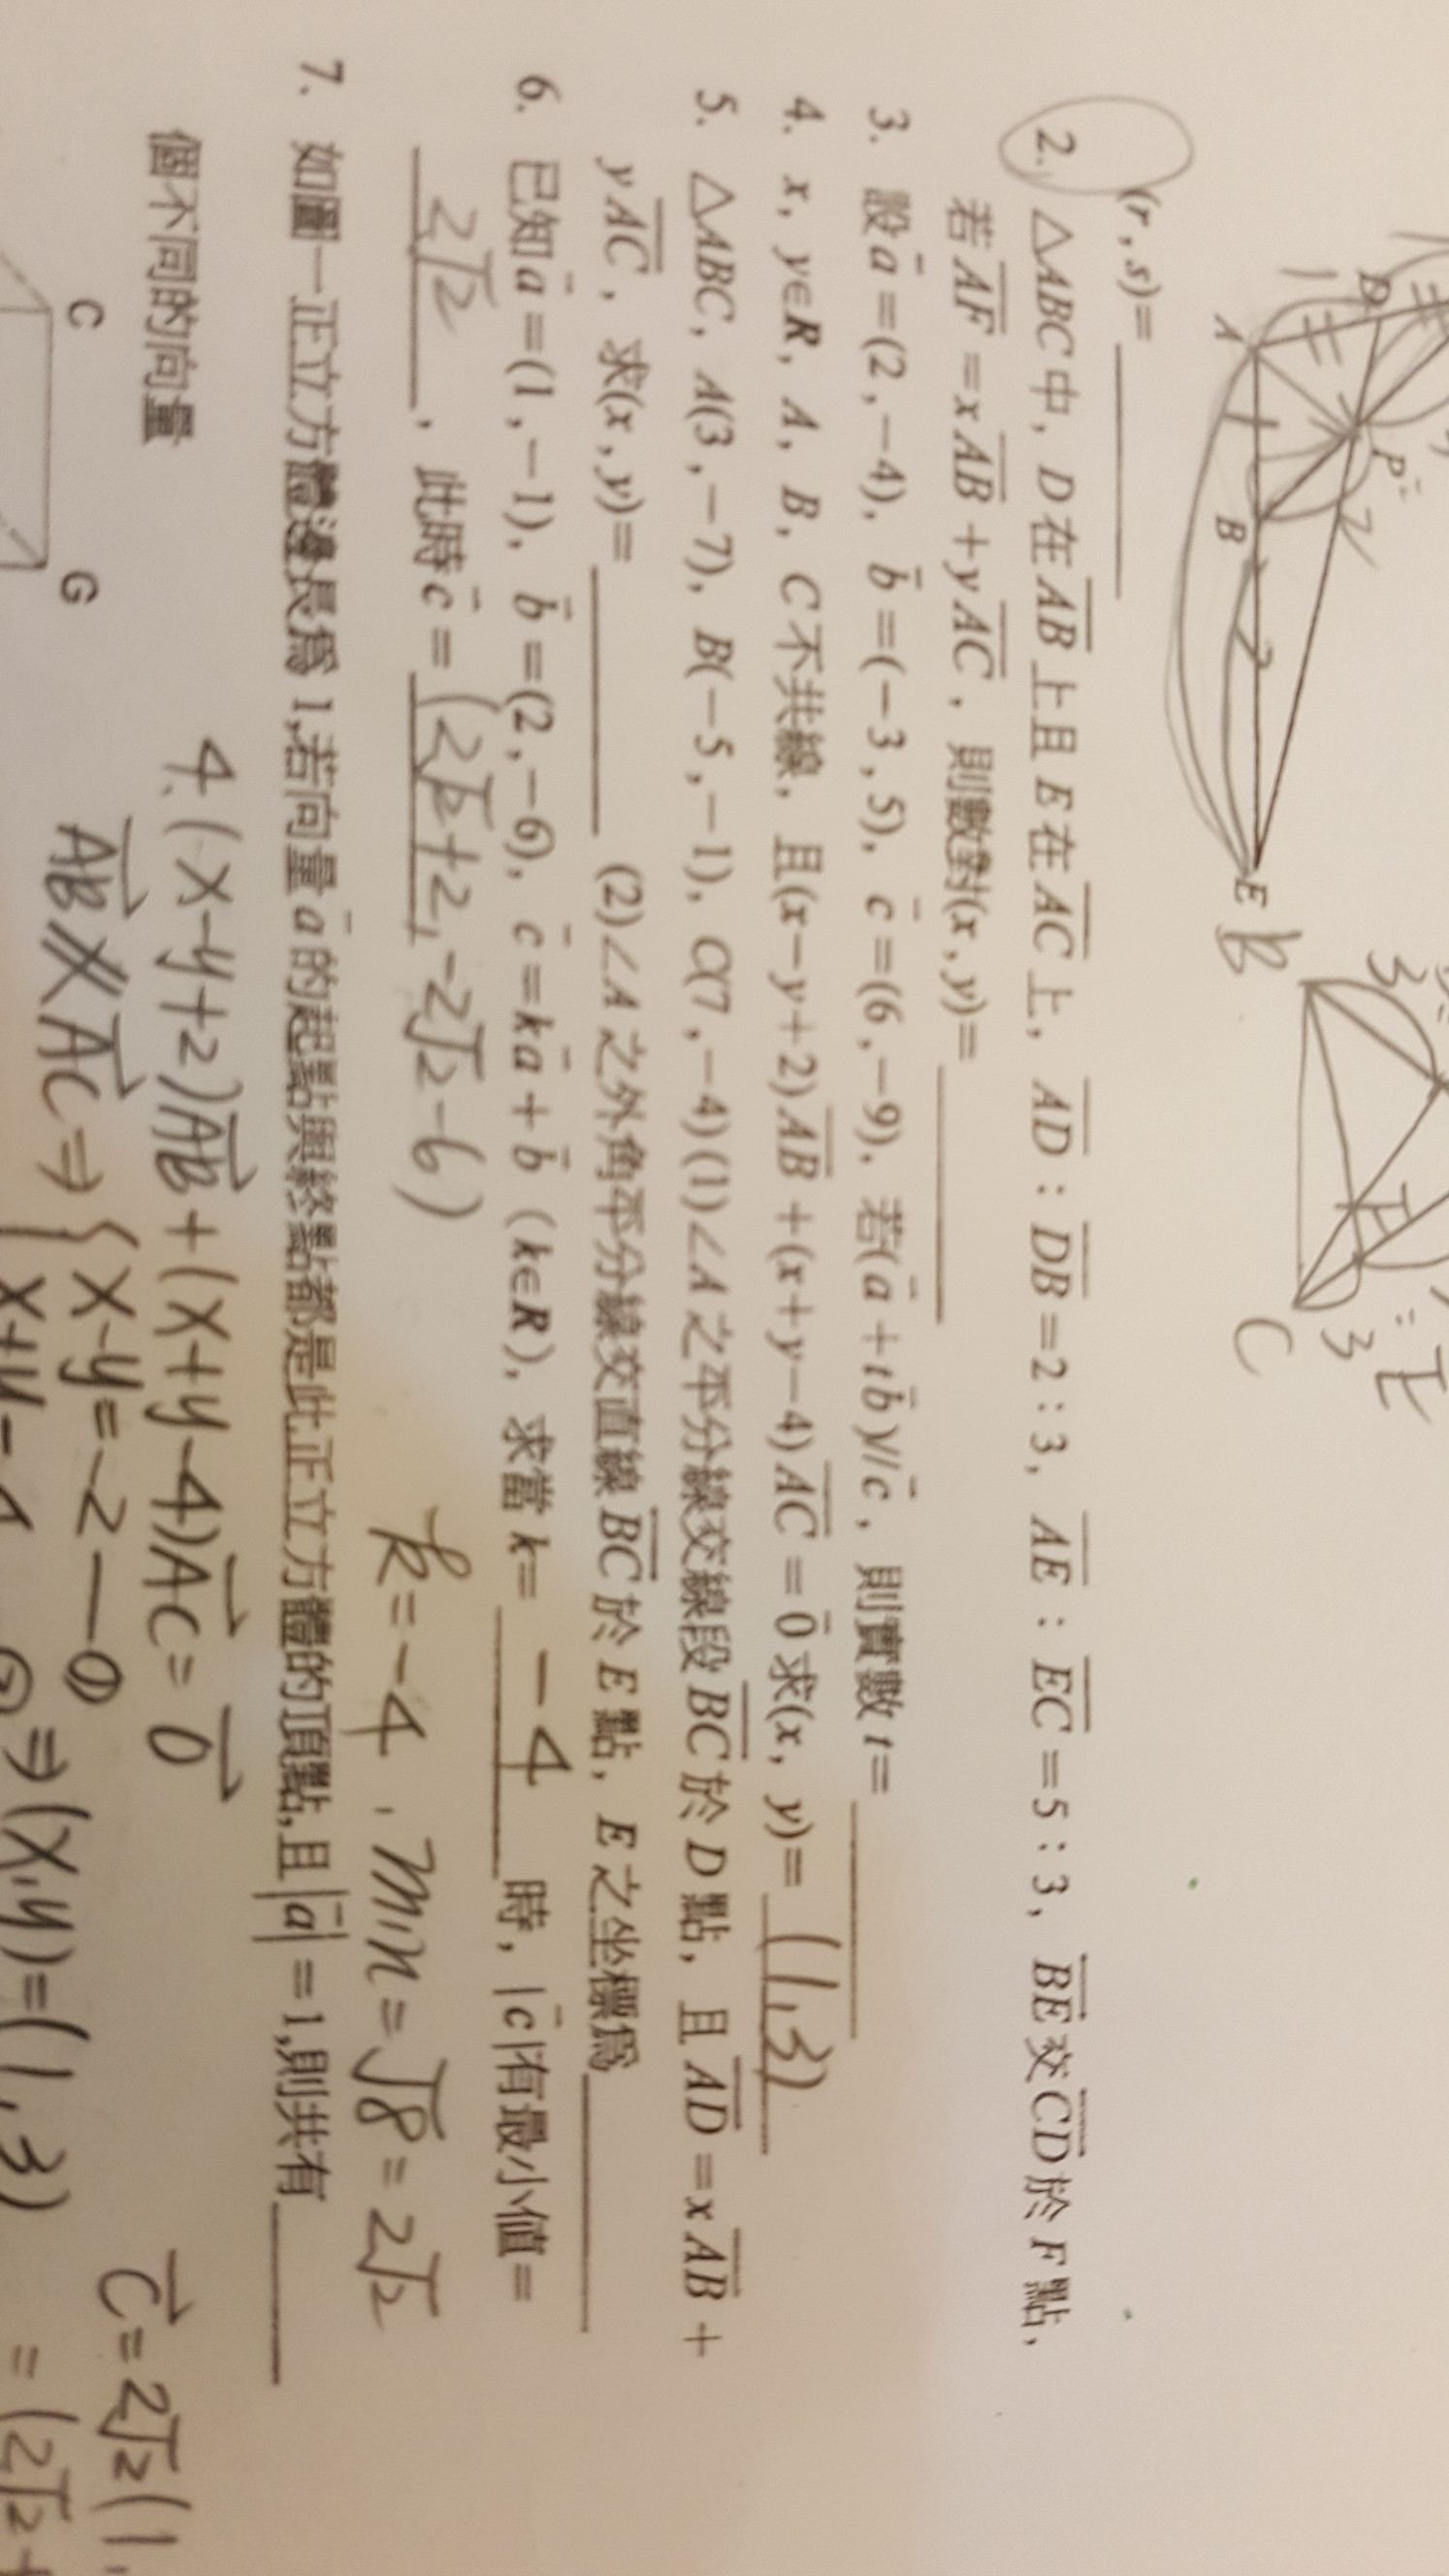 D
P
A
B
E
B
C
3
3
(r,s)=
2. △ABC中,D在AB上且E在AC上,AD:DB=2:3,AE:EC=5:3,BE交CD於F點,
若AF=xAB+yAC,則數對(x,y)=
3. 設a=(2,-4),b=(-3,5),c=(6,-9),若(a+tb)//c,則實數t=
4. x,y∈R,A,B,C不共線,且(x-y+2)AB+(x+y-4)AC=0求(x,y)= (1,3)
5. △ABC,A(3,-7),B(-5,-1),C(7,-4)(1)∠A之平分線交線段BC於D點,且AD=xAB+
yAC,求(x,y)= (2)∠A之外角平分線交直線BC於E點,E之坐標為
6. 已知a=(1,-1),b=(2,-6),c=ka+b(k∈R),求當k= -4 時,|c|有最小值=
2√2 ,此時c= (2√2+2,-2√2-6)
k=-4, min=√8=2√2
7. 如圖一正立方體邊長為1,若向量a的起點與終點都是此正立方體的頂點,且|a|=1,則共有
個不同的向量
4. (x-y+2)AB+(x+y-4)AC=0
C
G
AB∦AC⇒{x-y=-2—①
⇒(x,y)=(1,3)
c=2√2(1,
=(2√2+